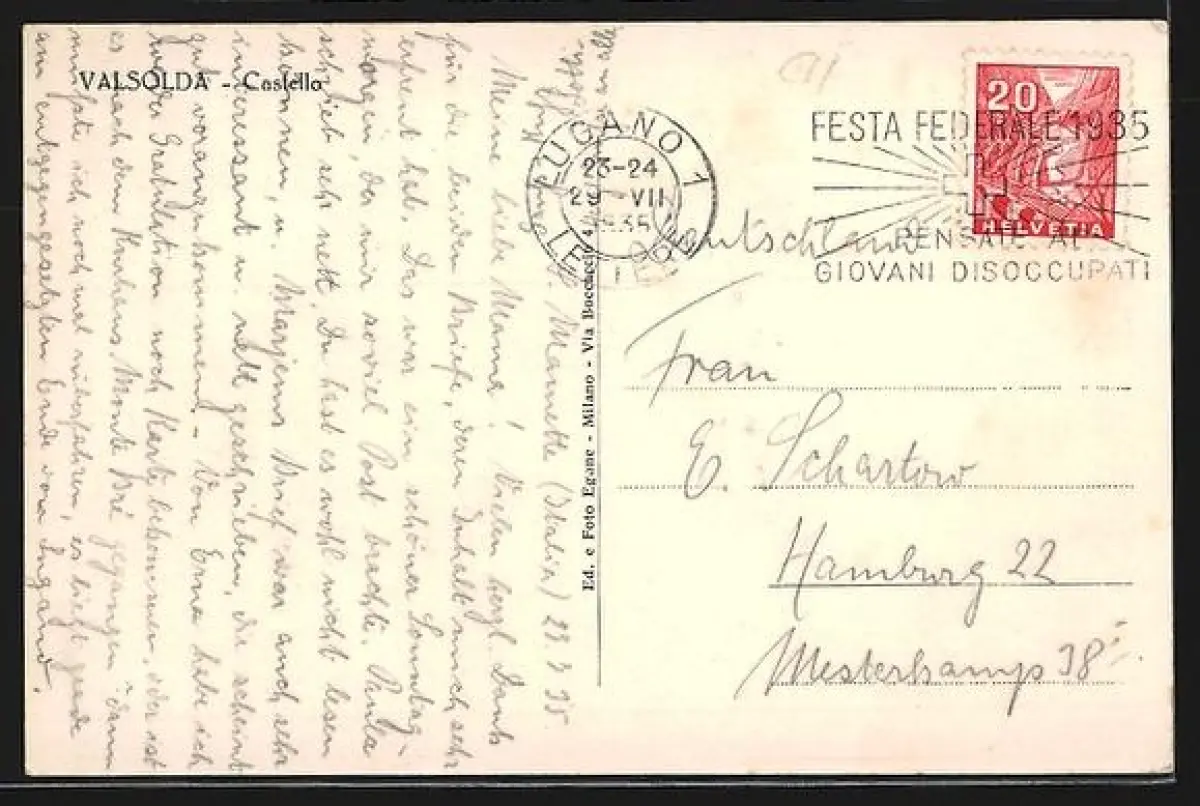 VALSOLDA - Castello
LUGANO 1
23-24
29 VII
1935
LETTERE
FESTA FEDERALE 1935
PENSATE AI
GIOVANI DISOCCUPATI
20
HELVETIA
Deutschland
Frau
E. Schartow
Hamburg 22
Mesterkamp 38
Ed. e Foto Egone - Milano - Via Boccaccio
S. Mamette (Italien)
Meine liebe Mama! Vielen herzl. Dank
für die beiden Briefe, deren Inhalt mich sehr
erfreut hat. Das war ein schöner Sonntag-
morgen, der mir soviel Post brachte. Paula
schrieb sehr nett. Du hast es wohl nicht lesen
können, u. Brief war auch sehr
interessant u. nett geschrieben, die scheint
gut voranzukommen. Von Erna habe ich
weder Gratulation noch Karte bekommen, oder ist
es nach dem Kurhaus Monte Brè gegangen, dann
muss ich noch mal rüberfahren, es liegt gerade
am entgegengesetzten Ende von Lugano.